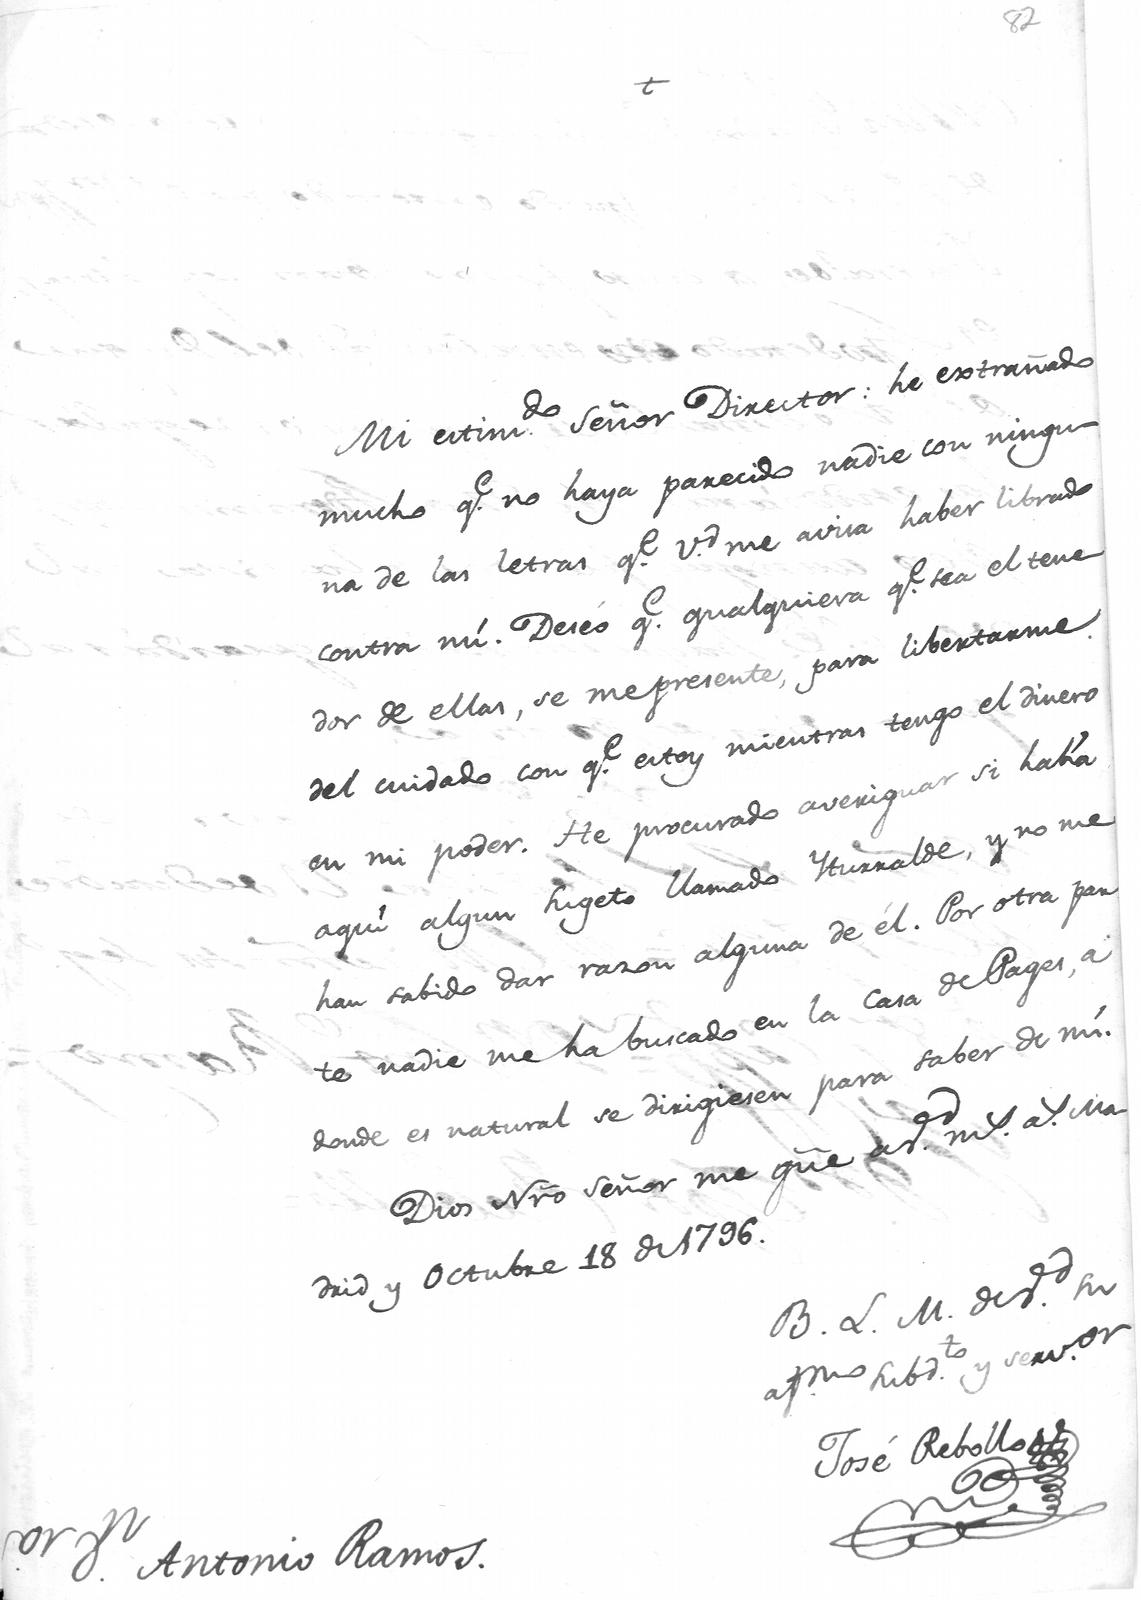 82
t
Mi estim.do Señor Director: he extrañado
mucho q.e no haya parecido nadie con ningu-
na de las letras q.e V.d me avisa haber librado
contra mí. Deséo q.e qualquiera q.e sea el tene
dor de ellas, se me presente, para libertarme
del cuidado con q.e estoy mientras tengo el dinero
en mi poder. He procurado averiguar si había
aquí algun sugeto llamado Yturralde, y no me
han sabido dar razon alguna de él. Por otra par
te nadie me ha buscado en la Casa de Pages, á
donde es natural se dirigiesen para saber de mí.
Dios Nrõ Señor me gũe a V.d m.s a.s Ma-
drid y Octubre 18 de 1796.
B. L. M. de V.d su
af.mo subd.to y serv.or
José Rebollo
S.or D.n Antonio Ramos.